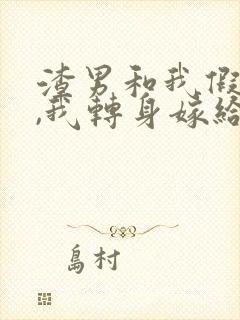 渣男和我假
,我轉身嫁給
島村